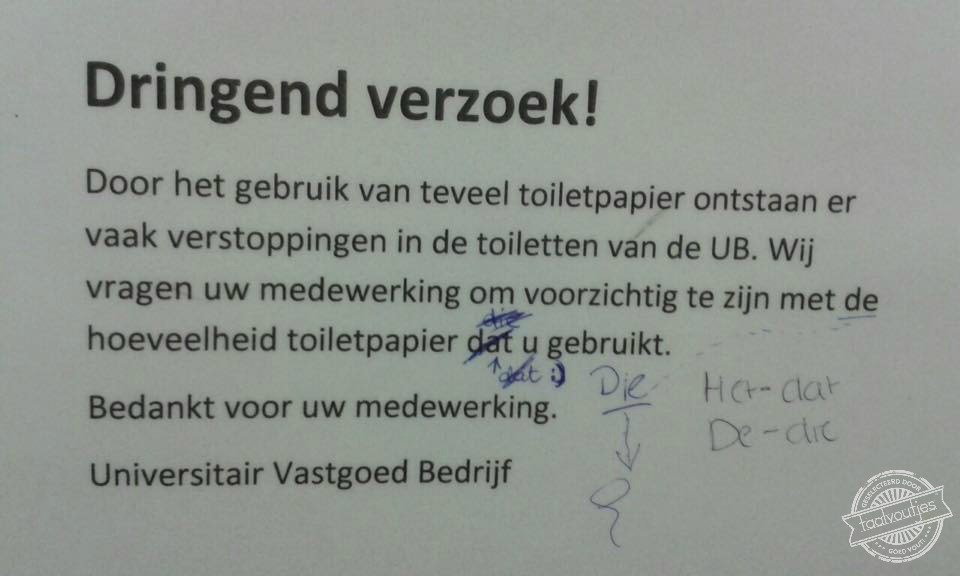 Dringend verzoek!
Door het gebruik van teveel toiletpapier ontstaan er
vaak verstoppingen in de toiletten van de UB. Wij
vragen uw medewerking om voorzichtig te zijn met de
die
hoeveelheid toiletpapier dat u gebruikt.
dat :)
Die
Het - dat
De - die
Bedankt voor uw medewerking.
Universitair Vastgoed Bedrijf
GESELECTEERD DOOR
taalvoutjes
GOED VOUT!